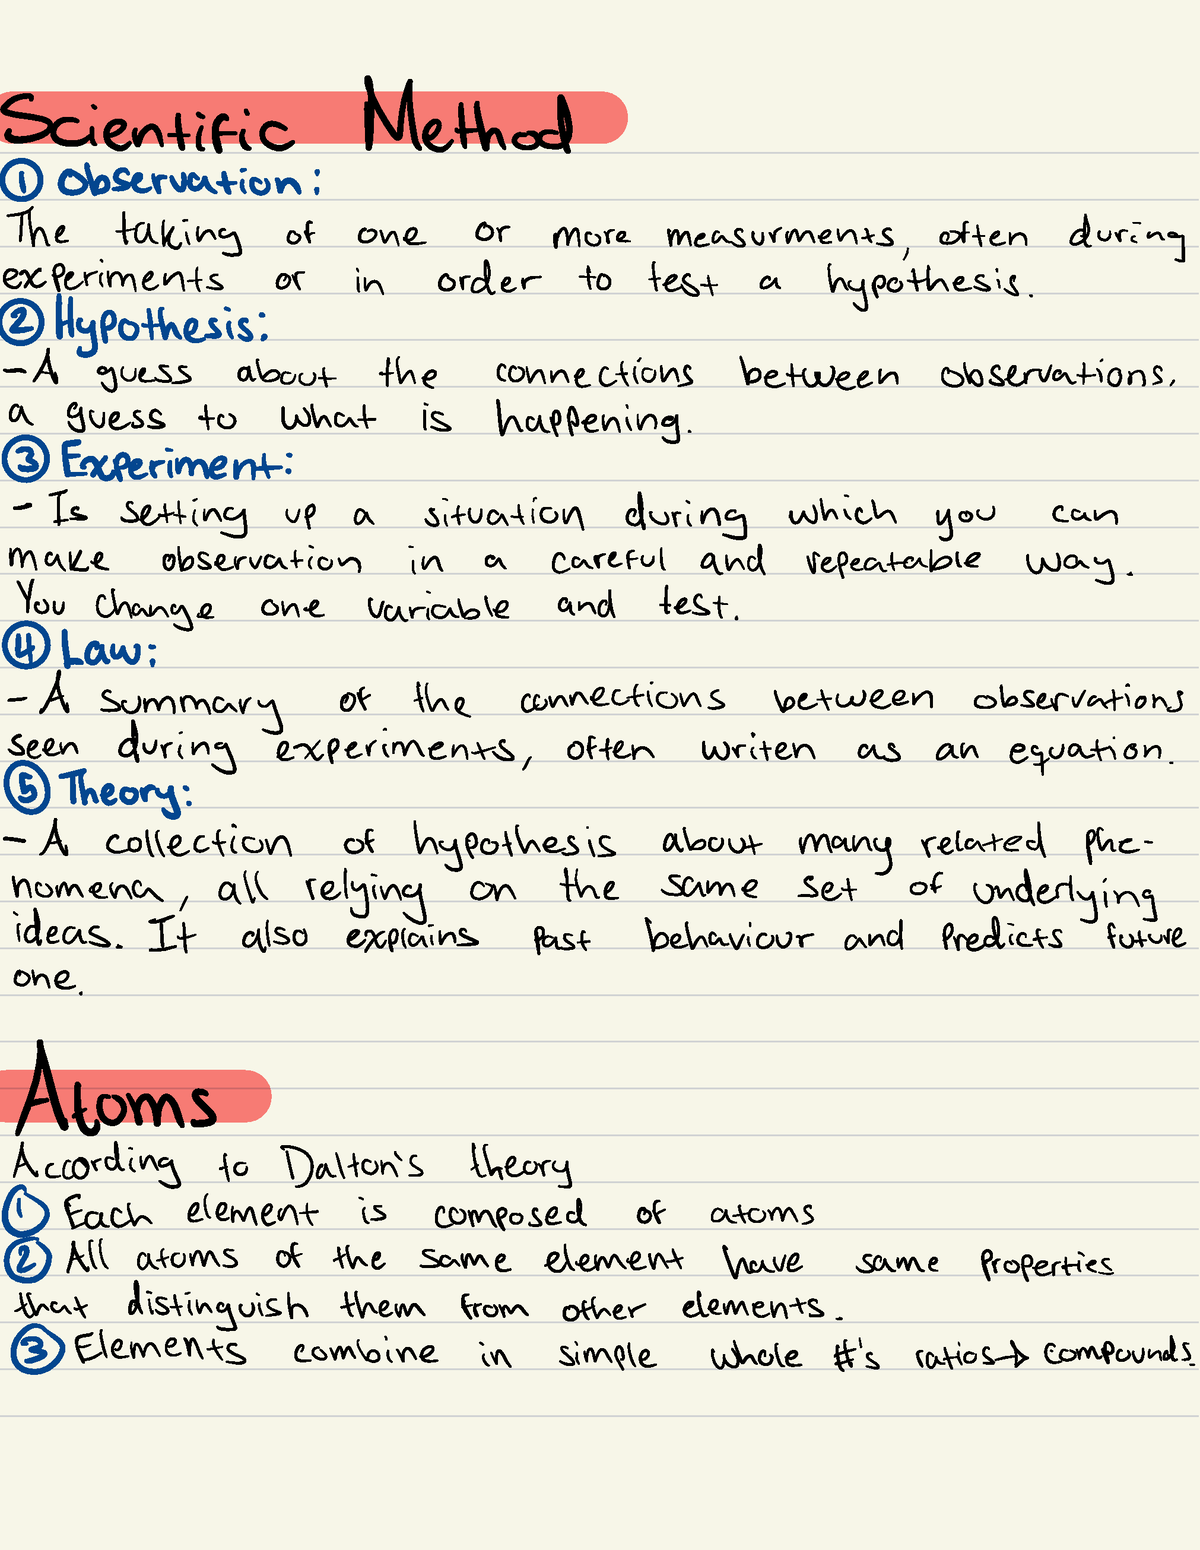 Scientific Method
① Observation:
The taking of one or more measurments, often during
experiments or in order to test a hypothesis.
② Hypothesis:
- A guess about the connections between observations,
a guess to what is happening.
③ Experiment:
- Is setting up a situation during which you can
make observation in a careful and repeatable way.
You change one variable and test.
④ Law:
- A summary of the connections between observations
seen during experiments, often writen as an equation.
⑤ Theory:
- A collection of hypothesis about many related phe-
nomena, all relying on the same set of underlying
ideas. It also explains past behaviour and predicts future
one.
Atoms
According to Dalton's theory
① Each element is composed of atoms
② All atoms of the same element have same properties
that distinguish them from other elements.
③ Elements combine in simple whole #'s ratios → compounds.